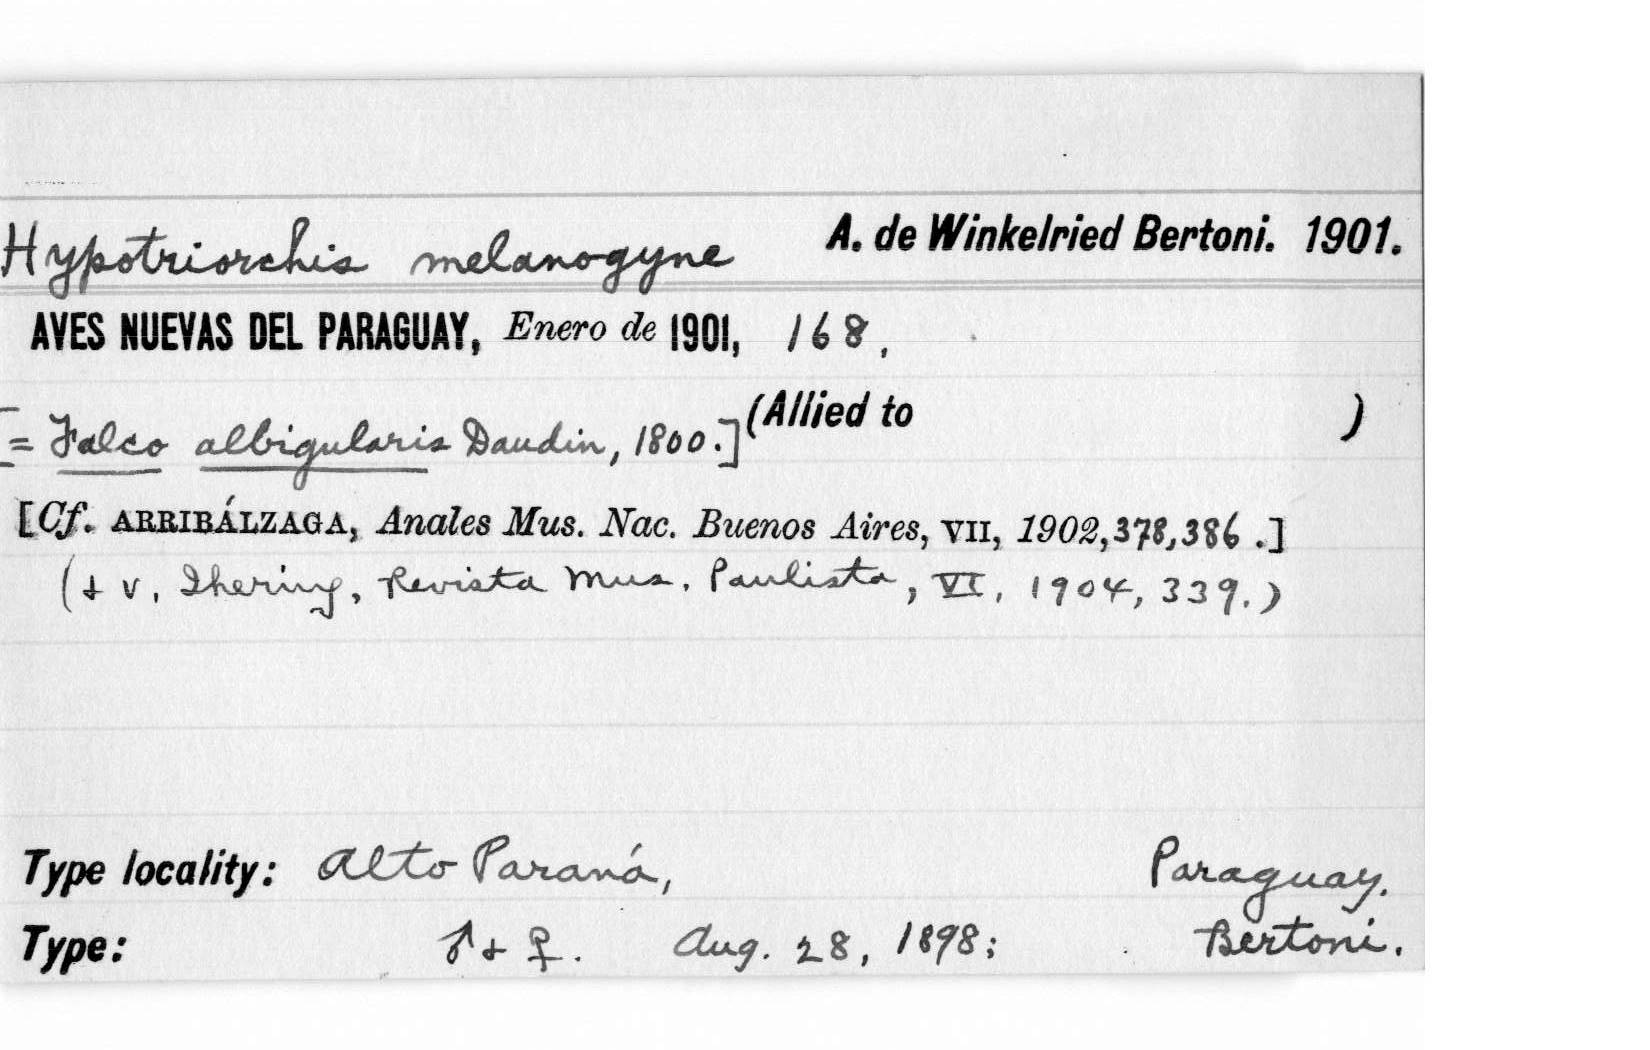 Hypotriorchis melanogyne A. de Winkelried Bertoni. 1901.
AVES NUEVAS DEL PARAGUAY, Enero de 1901, 168.
[= Falco albigularis Daudin, 1800.] (Allied to )
[Cf. ARRIBÁLZAGA, Anales Mus. Nac. Buenos Aires, VII, 1902, 378, 386.]
(+ v. Ihering, Revista Mus. Paulista, VI, 1904, 339.)
Type locality: Alto Paraná, Paraguay.
Type: ♂ + ♀. Aug. 28, 1898; Bertoni.